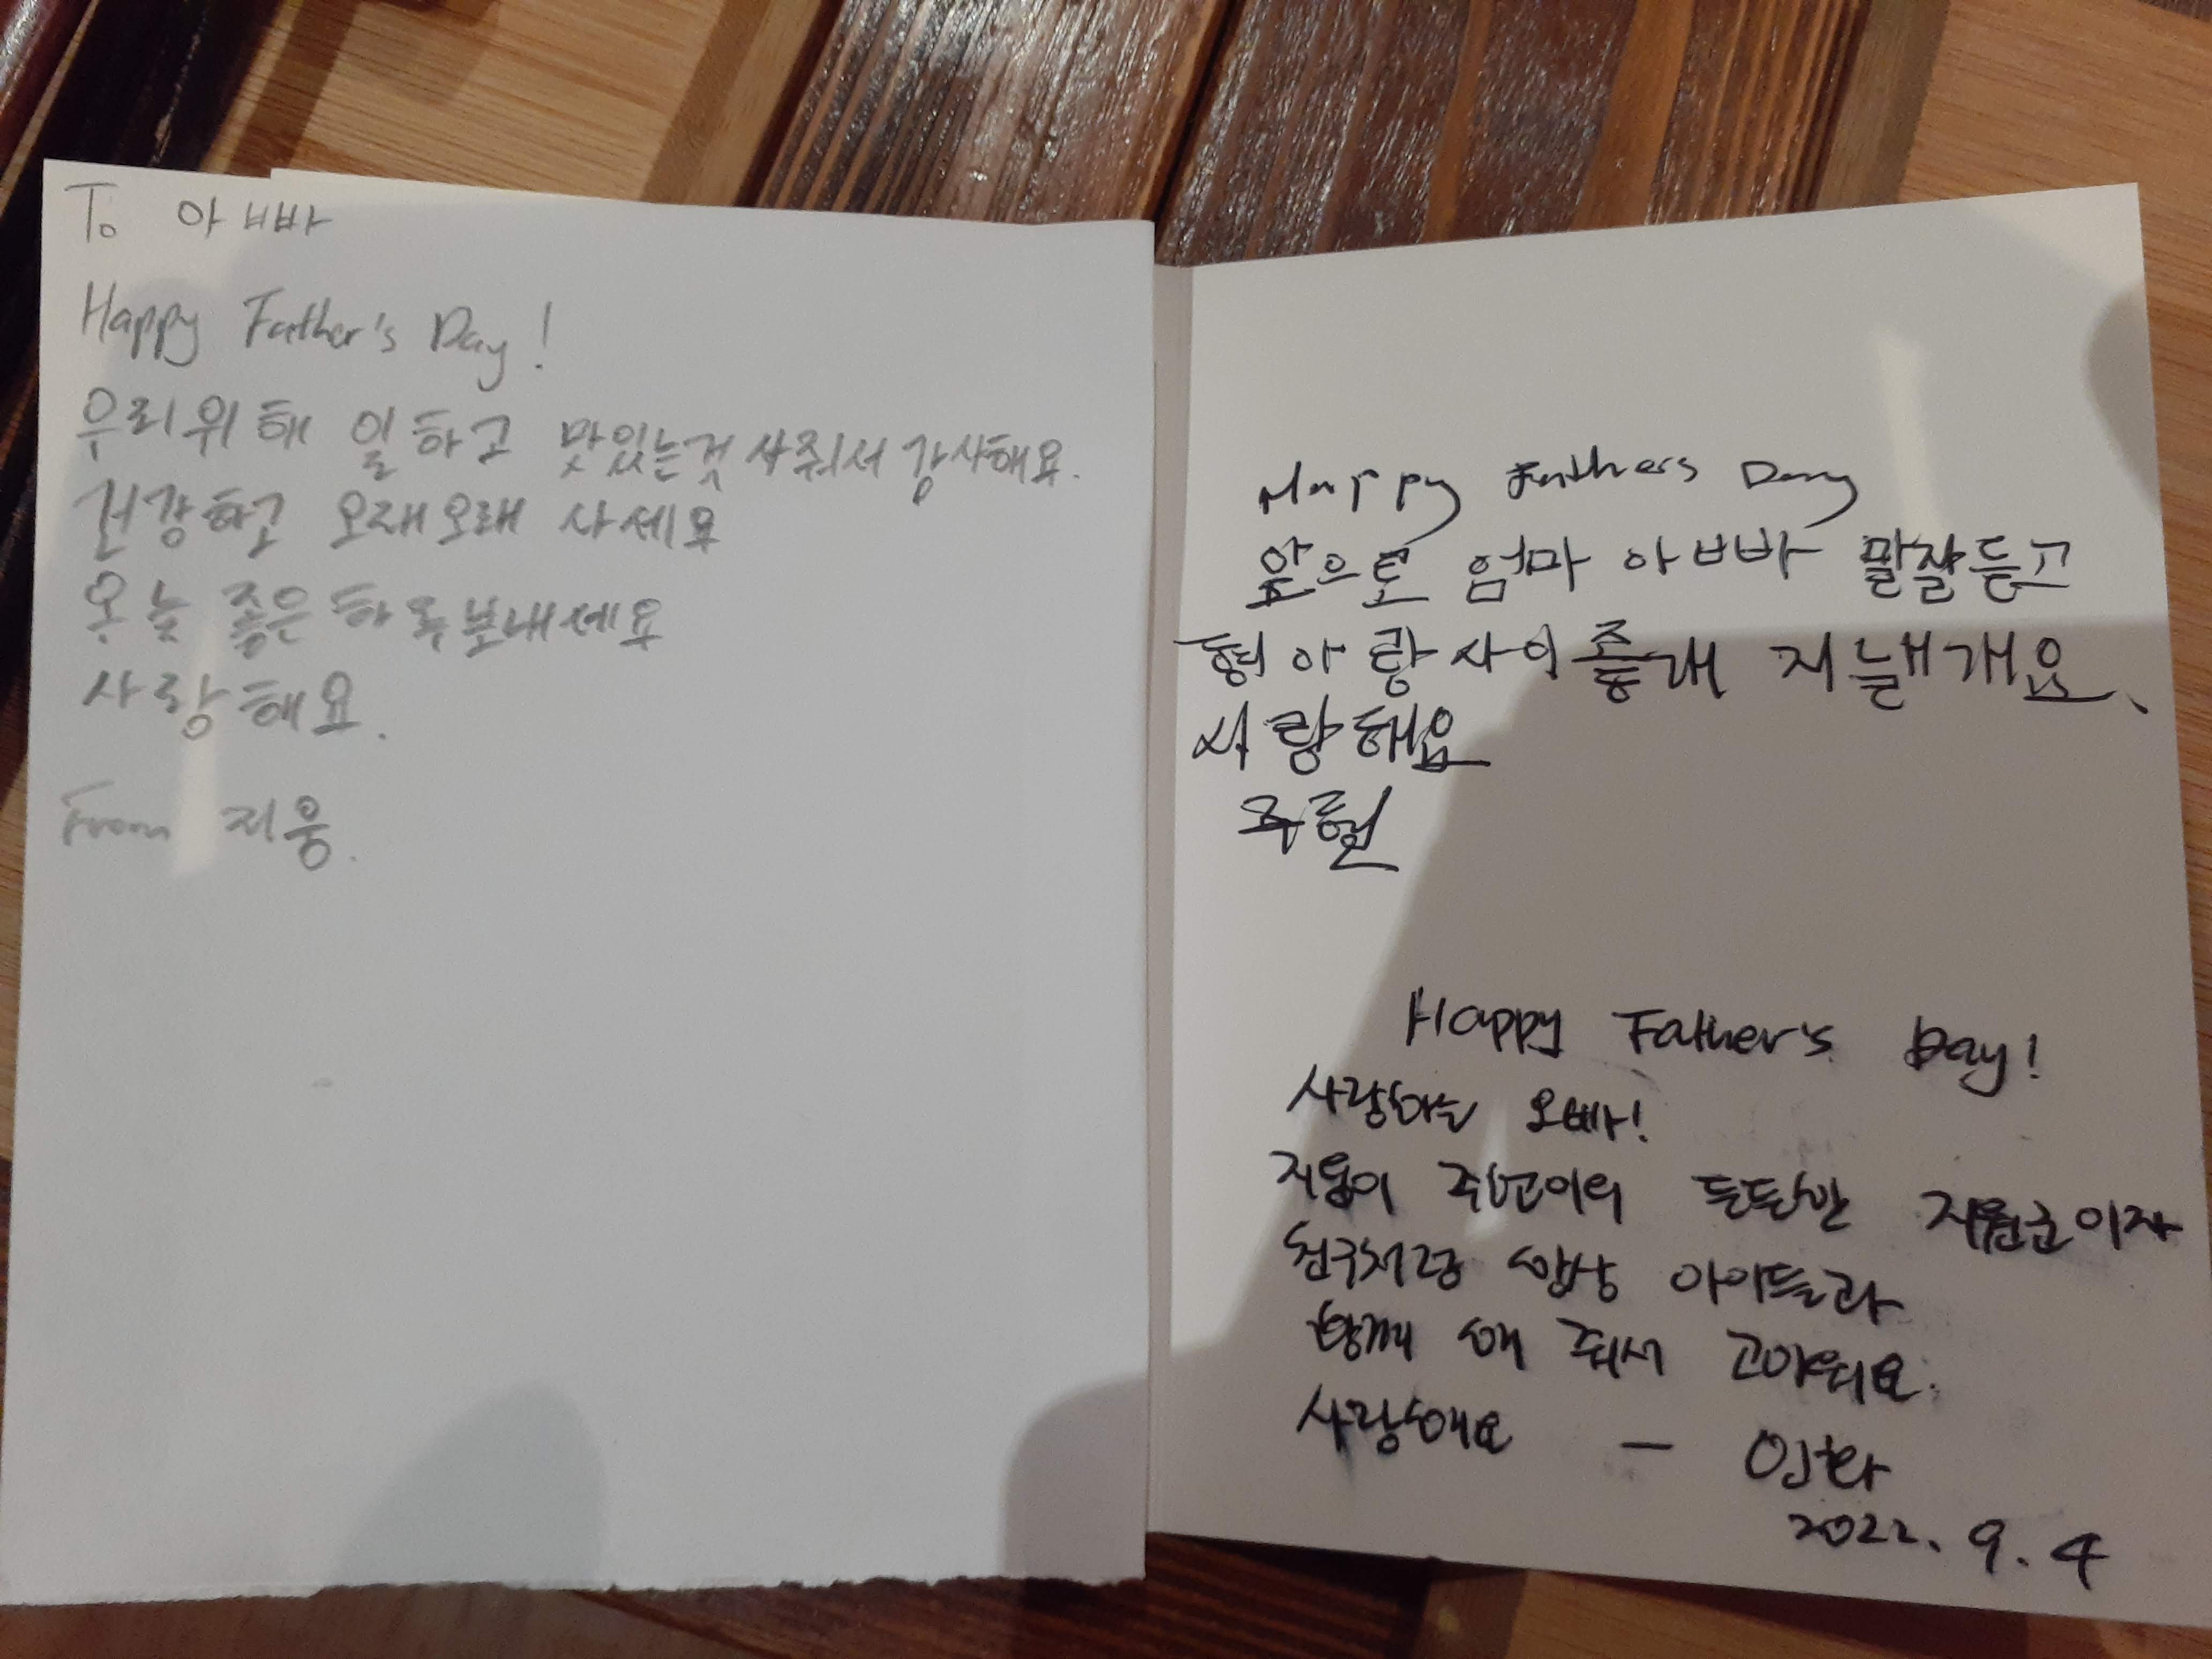 To 아빠
Happy Father's Day!
우리위해 일하고 맛있는것 사줘서 감사해요.
건강하고 오래오래 사세요
오늘 좋은하루보내세요
사랑해요.
From 지웅.
Happy Fathers Day
앞으로 엄마 아빠 말잘듣고
형아랑사이좋개 지낼개요.
사랑해요
주현
Happy Father's Day!
사랑하는 오빠!
지웅이 주현이의 든든한 지원군이자
친구처럼 항상 아이들과
함께 해 줘서 고마워요.
사랑해요 —
2022. 9. 4